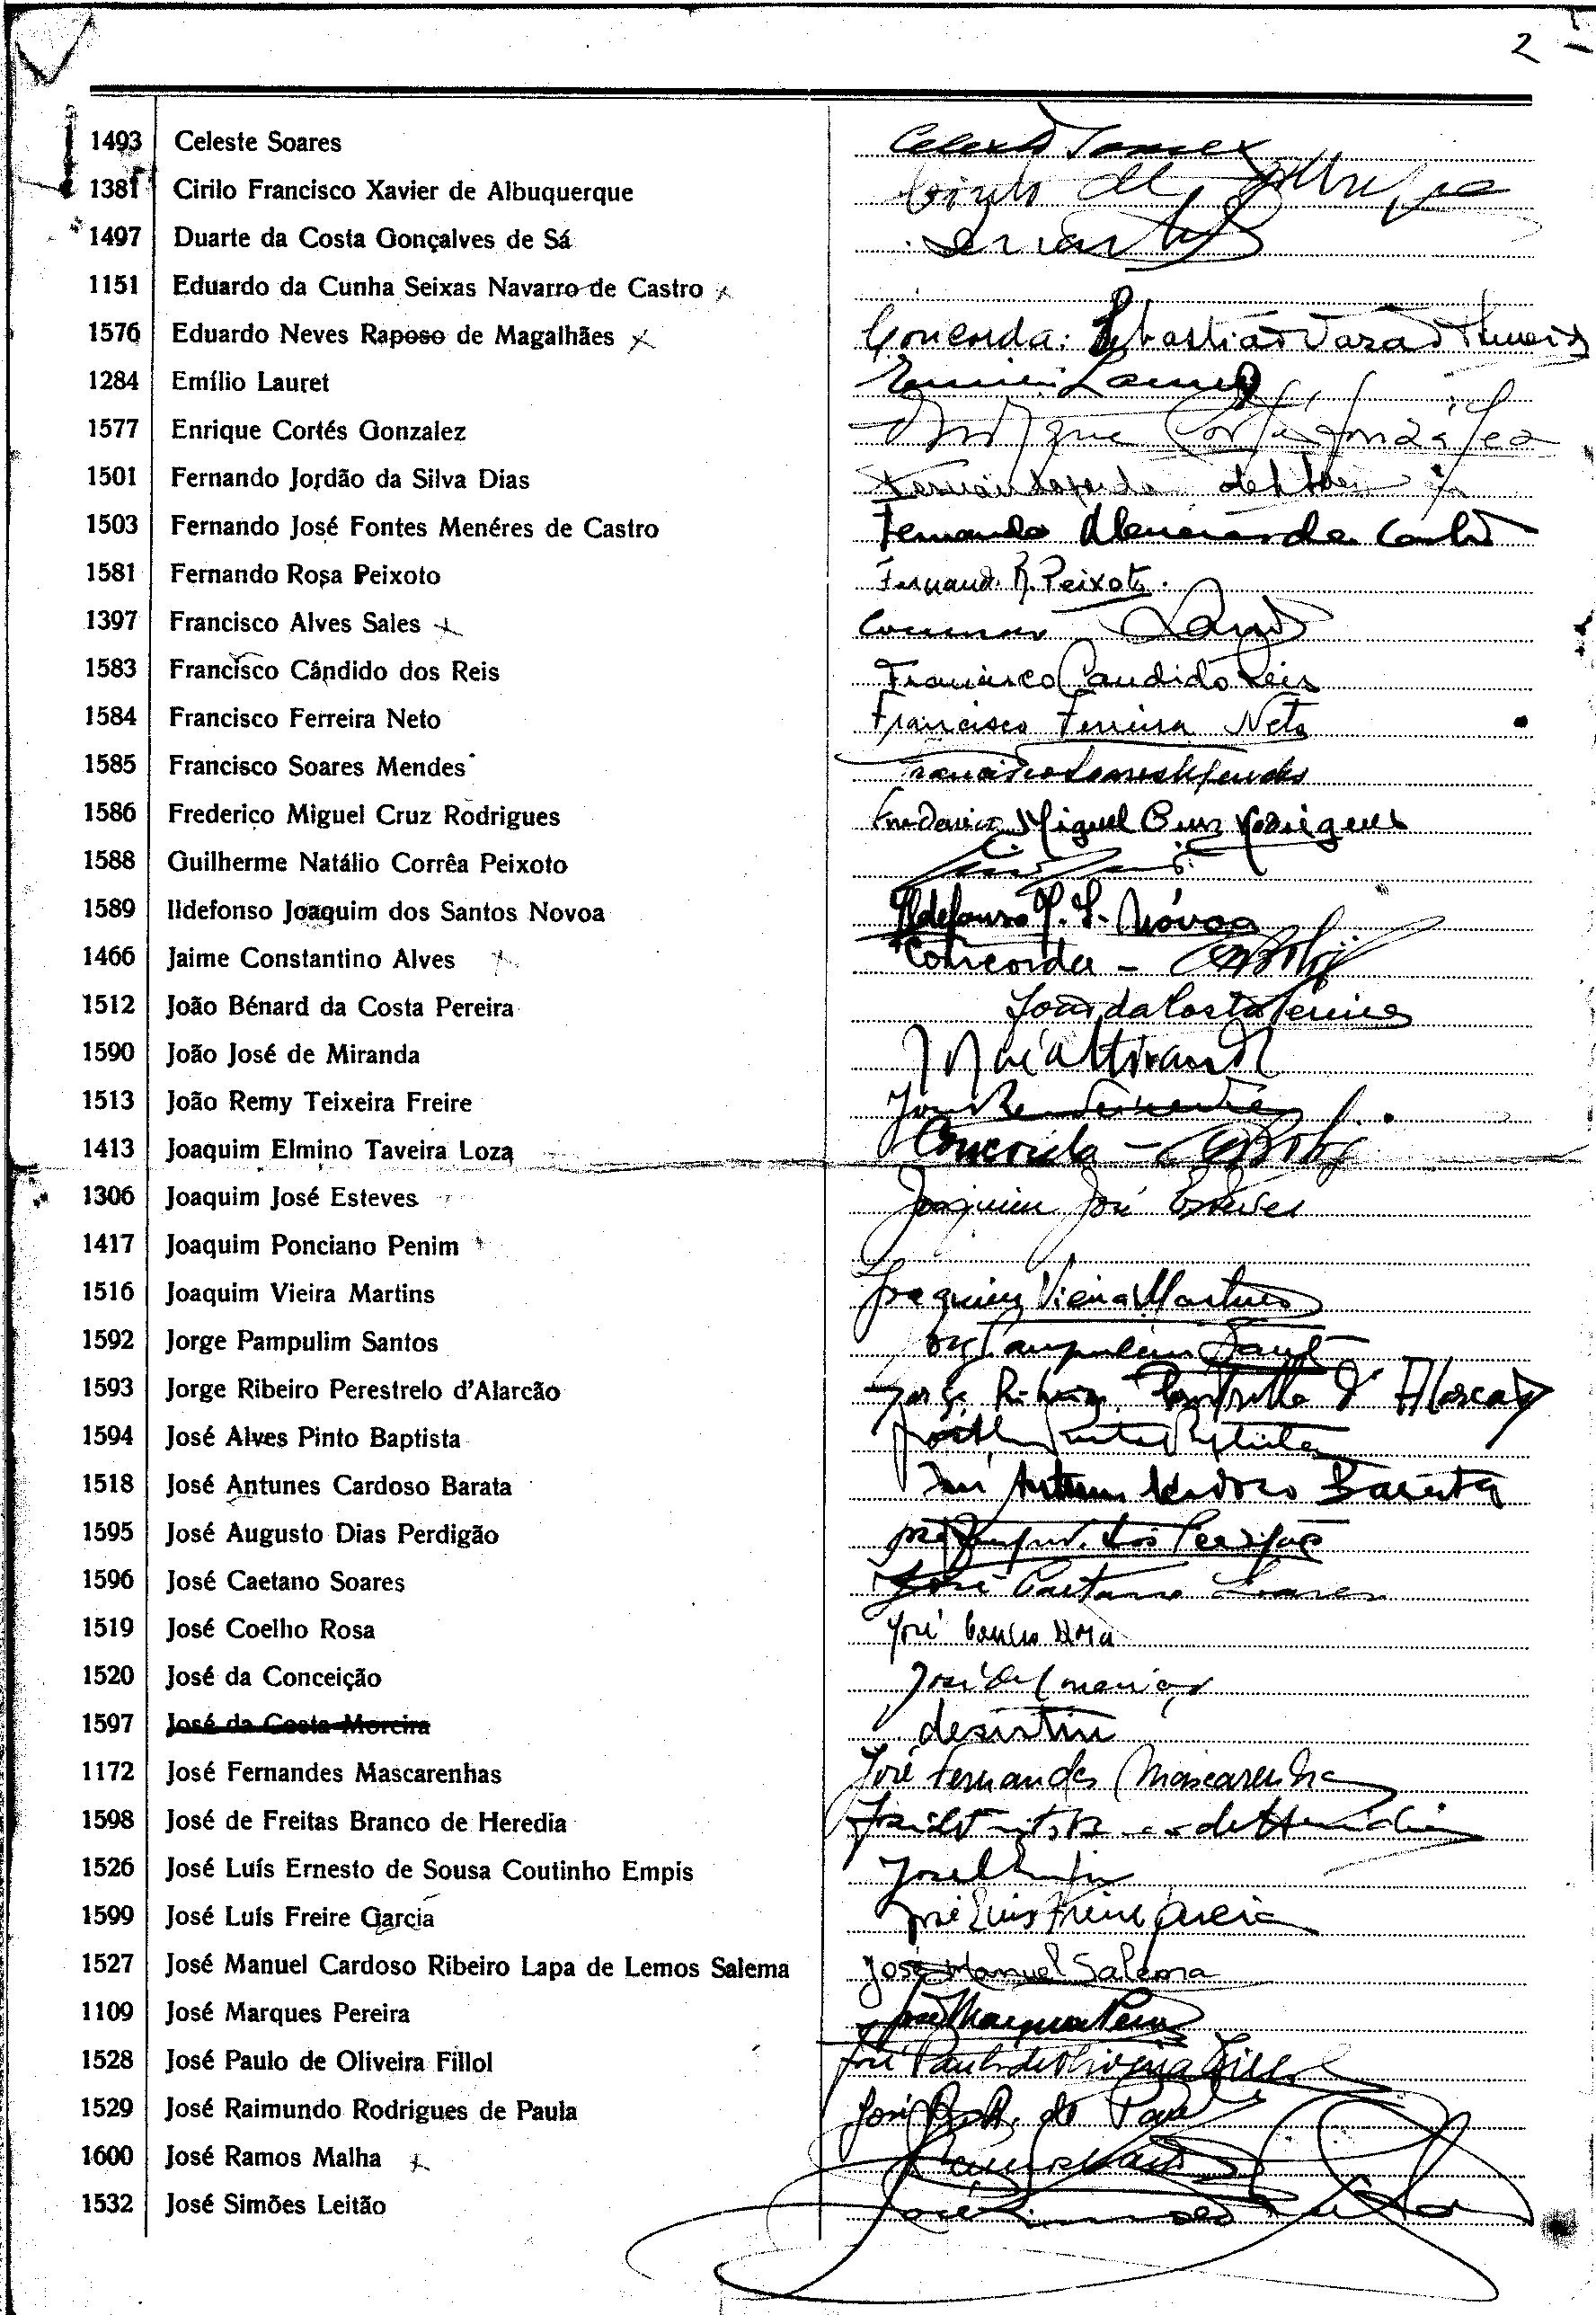 2
1493 Celeste Soares
1381 Cirilo Francisco Xavier de Albuquerque
1497 Duarte da Costa Gonçalves de Sá
1151 Eduardo da Cunha Seixas Navarro de Castro x
1576 Eduardo Neves Raposo de Magalhães x Concorda: Sebastião
1284 Emílio Lauret
1577 Enrique Cortés Gonzalez
1501 Fernando Jordão da Silva Dias
1503 Fernando José Fontes Menéres de Castro Fernando Meneres de Castro
1581 Fernando Rosa Peixoto Fernando R. Peixoto
1397 Francisco Alves Sales x
1583 Francisco Cândido dos Reis Francisco Candido Reis
1584 Francisco Ferreira Neto Francisco Ferreira Neto
1585 Francisco Soares Mendes Francisco Soares Mendes
1586 Frederico Miguel Cruz Rodrigues Frederico Miguel Cruz Rodrigues
1588 Guilherme Natálio Corrêa Peixoto
1589 Ildefonso Joaquim dos Santos Novoa Ildefonso J. S. Nóvoa
1466 Jaime Constantino Alves x Concorda -
1512 João Bénard da Costa Pereira João da Costa Pereira
1590 João José de Miranda
1513 João Remy Teixeira Freire
1413 Joaquim Elmino Taveira Loza Concorda -
1306 Joaquim José Esteves Joaquim José Esteves
1417 Joaquim Ponciano Penim
1516 Joaquim Vieira Martins Joaquim Vieira Martins
1592 Jorge Pampulim Santos Jorge Pampulim Santos
1593 Jorge Ribeiro Perestrelo d'Alarcão Jorge Ribeiro Perestrello d'Alarcão
1594 José Alves Pinto Baptista
1518 José Antunes Cardoso Barata José Antunes Cardoso Barata
1595 José Augusto Dias Perdigão José Augusto Dias Perdigão
1596 José Caetano Soares José Caetano Soares
1519 José Coelho Rosa José Coelho Rosa
1520 José da Conceição José da Conceição
1597 José da Costa Moreira desistiu
1172 José Fernandes Mascarenhas José Fernandes Mascarenhas
1598 José de Freitas Branco de Heredia
1526 José Luís Ernesto de Sousa Coutinho Empis
1599 José Luís Freire Garcia José Luis Freire Garcia
1527 José Manuel Cardoso Ribeiro Lapa de Lemos Salema José Manuel Salema
1109 José Marques Pereira José Marques Pereira
1528 José Paulo de Oliveira Fillol José Paulo de Oliveira Fillol
1529 José Raimundo Rodrigues de Paula
1600 José Ramos Malha x
1532 José Simões Leitão José Simões Leitão